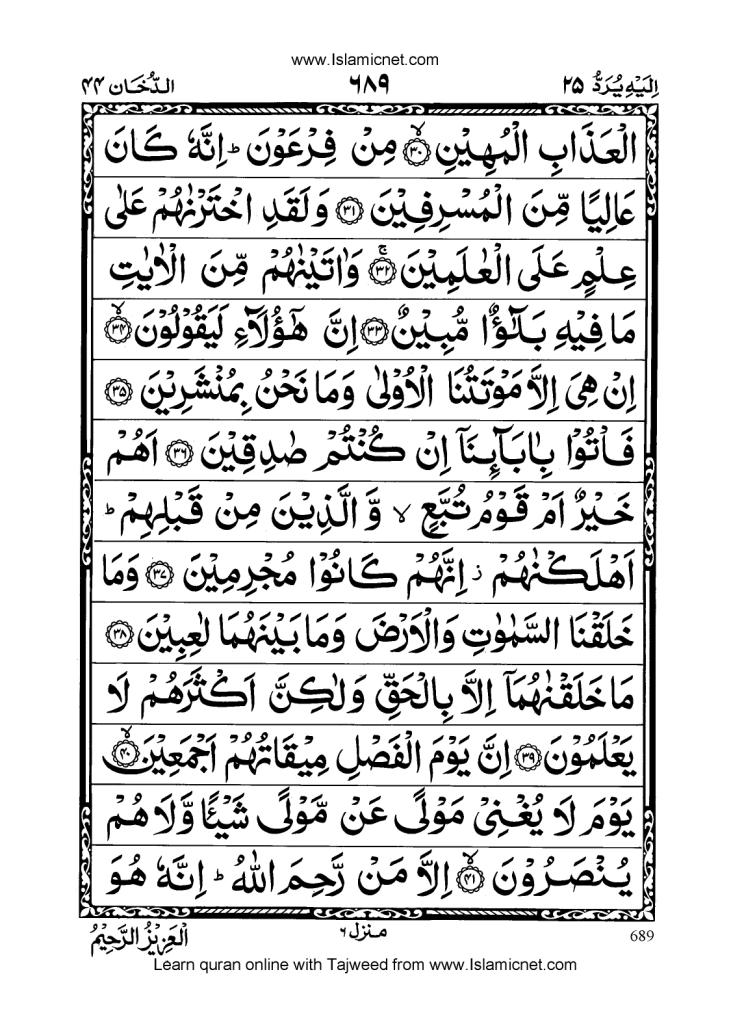 www.Islamicnet.com
اِلَیْهِ یُرَدُّ ۲۵ ۶۸۹ الدُّخَان ۴۴
الْعَذَابِ الْمُهِیْنِ ﴿۳۰﴾ۙ مِنْ فِرْعَوْنَ ؕ اِنَّهٗ كَانَ
عَالِیًا مِّنَ الْمُسْرِفِیْنَ ﴿۳۱﴾ وَلَقَدِ اخْتَرْنٰهُمْ عَلٰی
عِلْمٍ عَلَی الْعٰلَمِیْنَ ﴿۳۲﴾ۚ وَاٰتَیْنٰهُمْ مِّنَ الْاٰیٰتِ
مَا فِیْهِ بَلٰٓؤٌا مُّبِیْنٌ ﴿۳۳﴾ اِنَّ هٰۤؤُلَآءِ لَیَقُوْلُوْنَ ﴿۳۴﴾ۙ
اِنْ هِیَ اِلَّا مَوْتَتُنَا الْاُوْلٰی وَمَا نَحْنُ بِمُنْشَرِیْنَ ﴿۳۵﴾
فَاْتُوْا بِاٰبَآئِنَاۤ اِنْ كُنْتُمْ صٰدِقِیْنَ ﴿۳۶﴾ اَهُمْ
خَیْرٌ اَمْ قَوْمُ تُبَّعٍ ۙ وَّالَّذِیْنَ مِنْ قَبْلِهِمْ ؕ
اَهْلَكْنٰهُمْ ؗ اِنَّهُمْ كَانُوْا مُجْرِمِیْنَ ﴿۳۷﴾ وَمَا
خَلَقْنَا السَّمٰوٰتِ وَالْاَرْضَ وَمَا بَیْنَهُمَا لٰعِبِیْنَ ﴿۳۸﴾
مَا خَلَقْنٰهُمَاۤ اِلَّا بِالْحَقِّ وَلٰكِنَّ اَكْثَرَهُمْ لَا
یَعْلَمُوْنَ ﴿۳۹﴾ اِنَّ یَوْمَ الْفَصْلِ مِیْقَاتُهُمْ اَجْمَعِیْنَ ﴿۴۰﴾ۙ
یَوْمَ لَا یُغْنِیْ مَوْلًی عَنْ مَّوْلًی شَیْـًٔا وَّلَا هُمْ
یُنْصَرُوْنَ ﴿۴۱﴾ۙ اِلَّا مَنْ رَّحِمَ اللّٰهُ ؕ اِنَّهٗ هُوَ
689 منزل ۶ الْعَزِیْزُ الرَّحِیْمُ
Learn quran online with Tajweed from www.Islamicnet.com